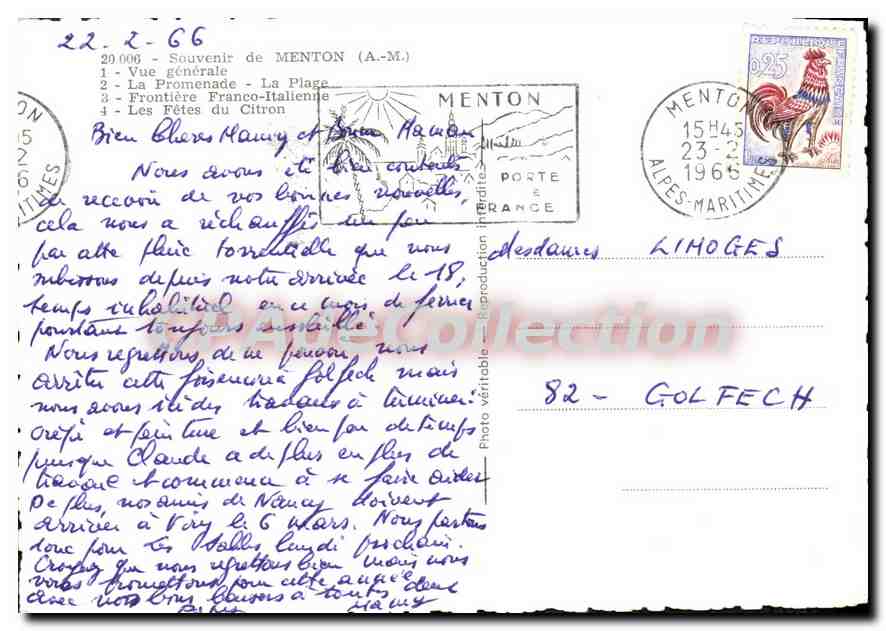 22-2-66
20.006 - Souvenir de MENTON (A.-M.)
1 - Vue générale
2 - La Promenade - La Plage
3 - Frontière Franco-Italienne
4 - Les Fêtes du Citron
MENTON
PORTE
DE
FRANCE
MENTON
15H45
23-2
1966
ALPES-MARITIMES
REPUBLIQUE FRANCAISE
0,25
Bien Chères Mamy et Maman
Nous avons été bien contents
de recevoir de vos bonnes nouvelles,
cela nous a réchauffés un peu
par cette pluie torrentielle que nous
subissons depuis notre arrivée le 18,
temps inhabituel en ce mois de février
pourtant toujours ensoleillé.
Nous regrettons de ne pouvoir nous
arrêter cette fois encore à Golfech mais
nous avons ici des travaux à terminer:
crépi et peinture et bien peu de temps
puisque Claude a de plus en plus de
travail et commence à se faire aider
De plus, nos amis de Nancy doivent
arriver à Viry le 6 mars. Nous partons
donc pour Les Salles lundi prochain.
Croyez que nous regrettons bien mais nous
vous promettons pour cette année
avec nos bons baisers à toutes deux
Mamy
Mesdames LIMOGES
82 - GOLFECH
Photo véritable - Reproduction interdite
CPAdeCollection